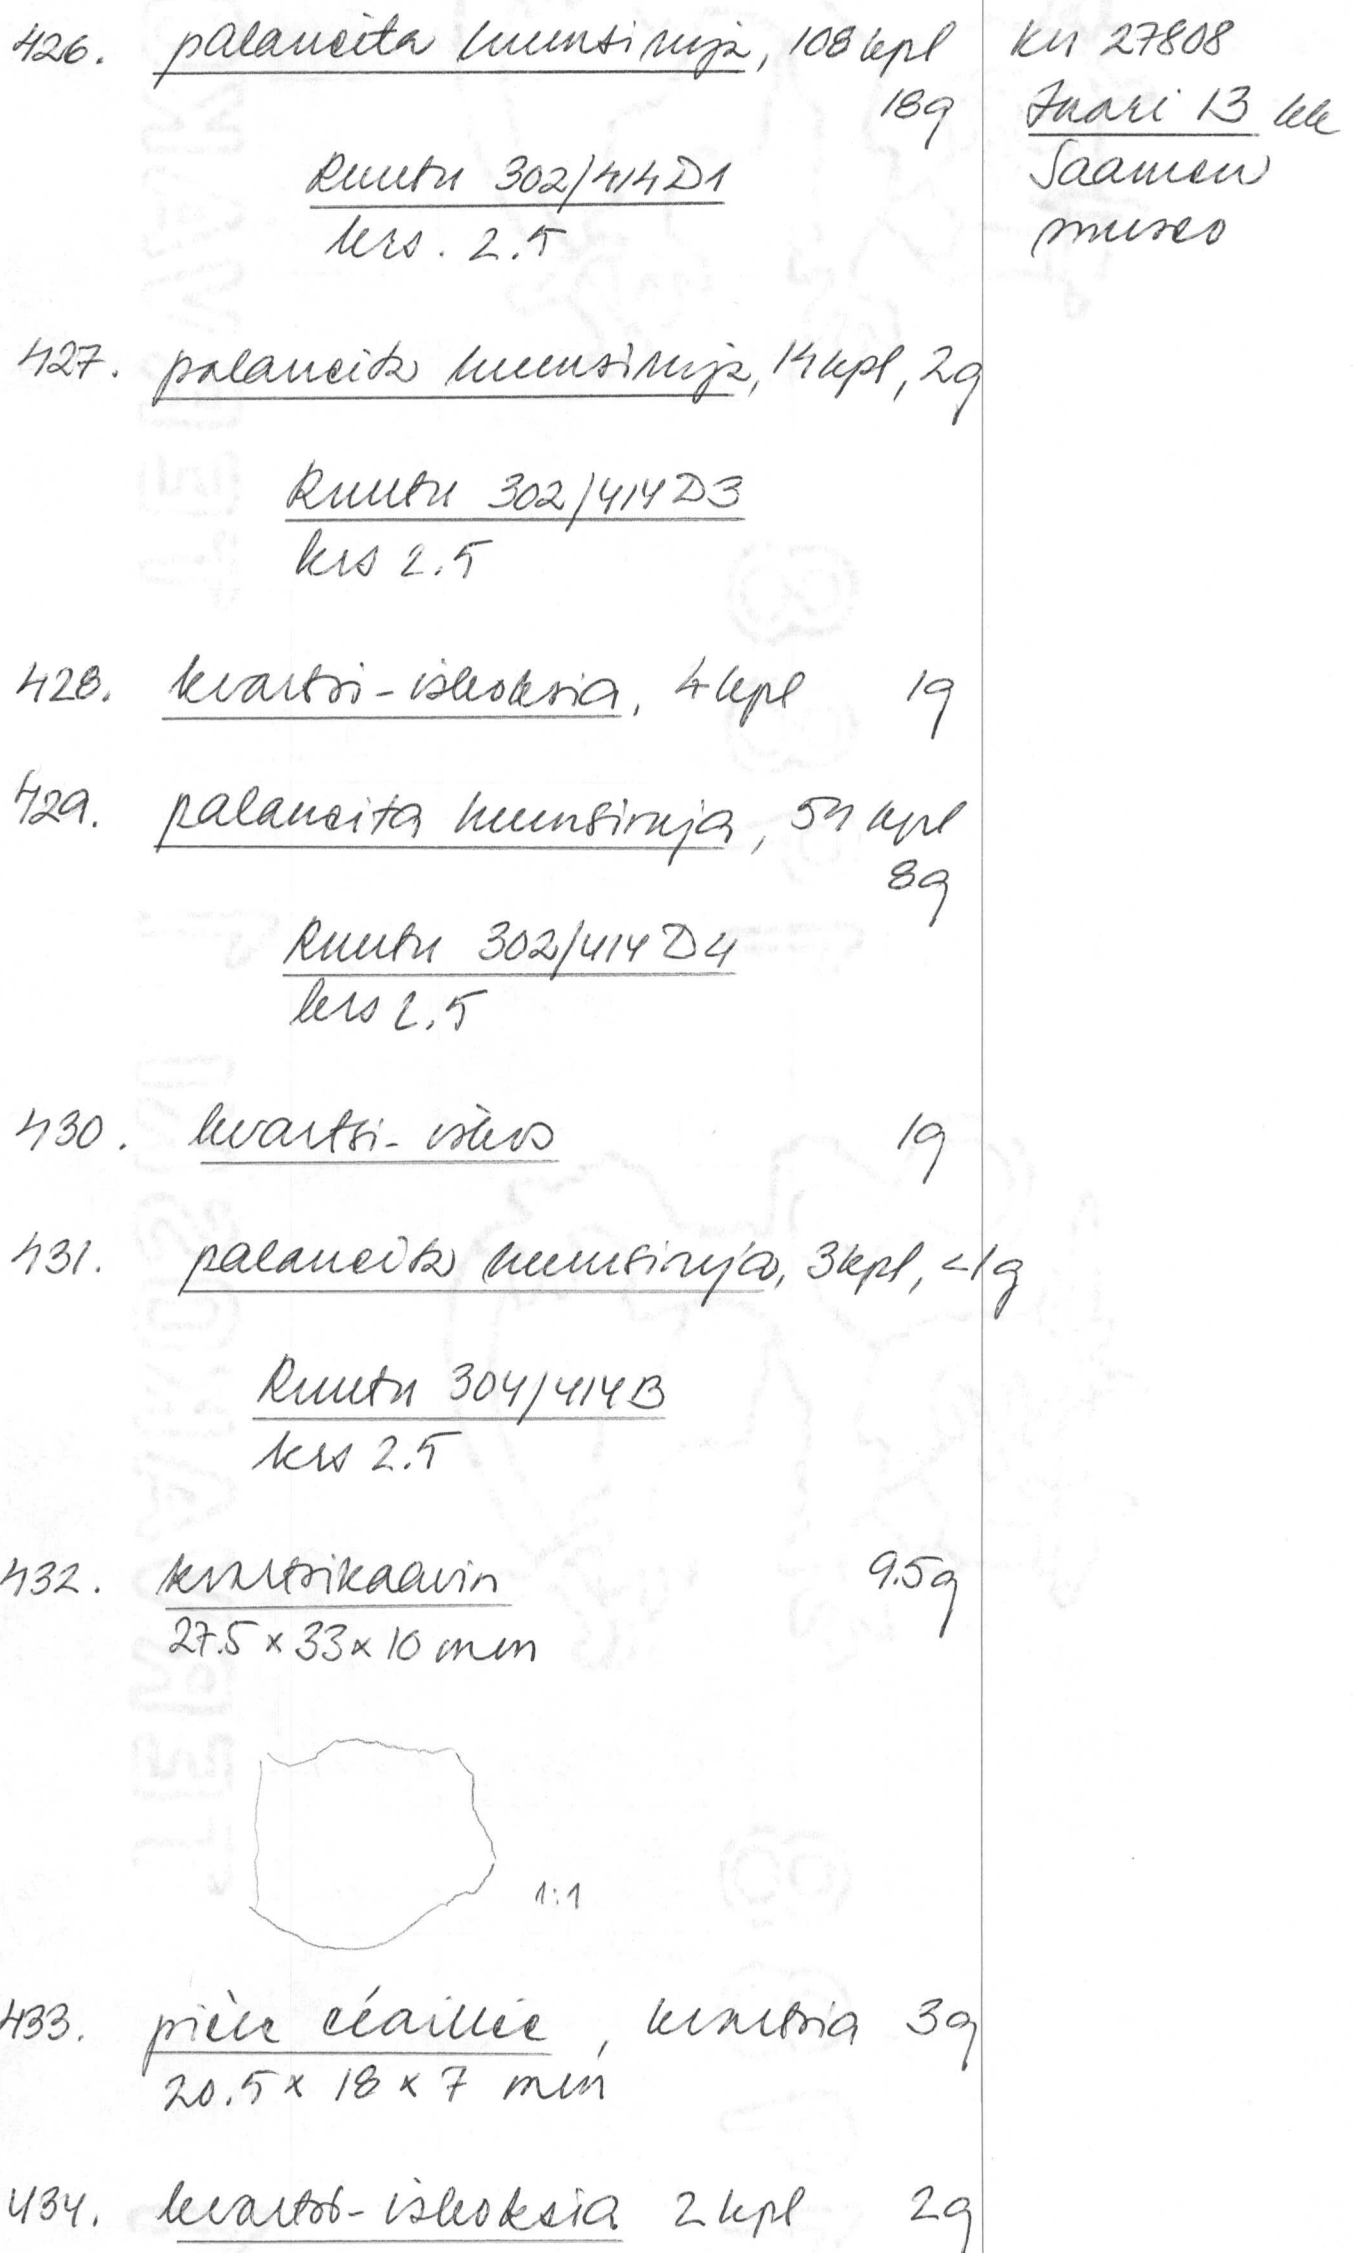 426. palaneita luunsiruja, 108 kpl
18g
KM 27808
Inari 13 kk
Saamen
museo
Ruutu 302/414 D1
krs. 2.5
427. palaneita luunsiruja, 14 kpl, 2g
Ruutu 302/414 D3
krs 2.5
428. kvartsi-iskoksia, 4 kpl 1g
429. palaneita luunsiruja, 54 kpl
8g
Ruutu 302/414 D4
krs 2.5
430. kvartsi-iskos 1g
431. palaneita luunsiruja, 3 kpl, <1g
Ruutu 304/414 B
krs 2.5
432. kvartsikaavin 9.5g
27.5 x 33 x 10 mm
1:1
433. pièce écaillée, kvartsia 3g
20.5 x 18 x 7 mm
434. kvartsi-iskoksia 2 kpl 2g